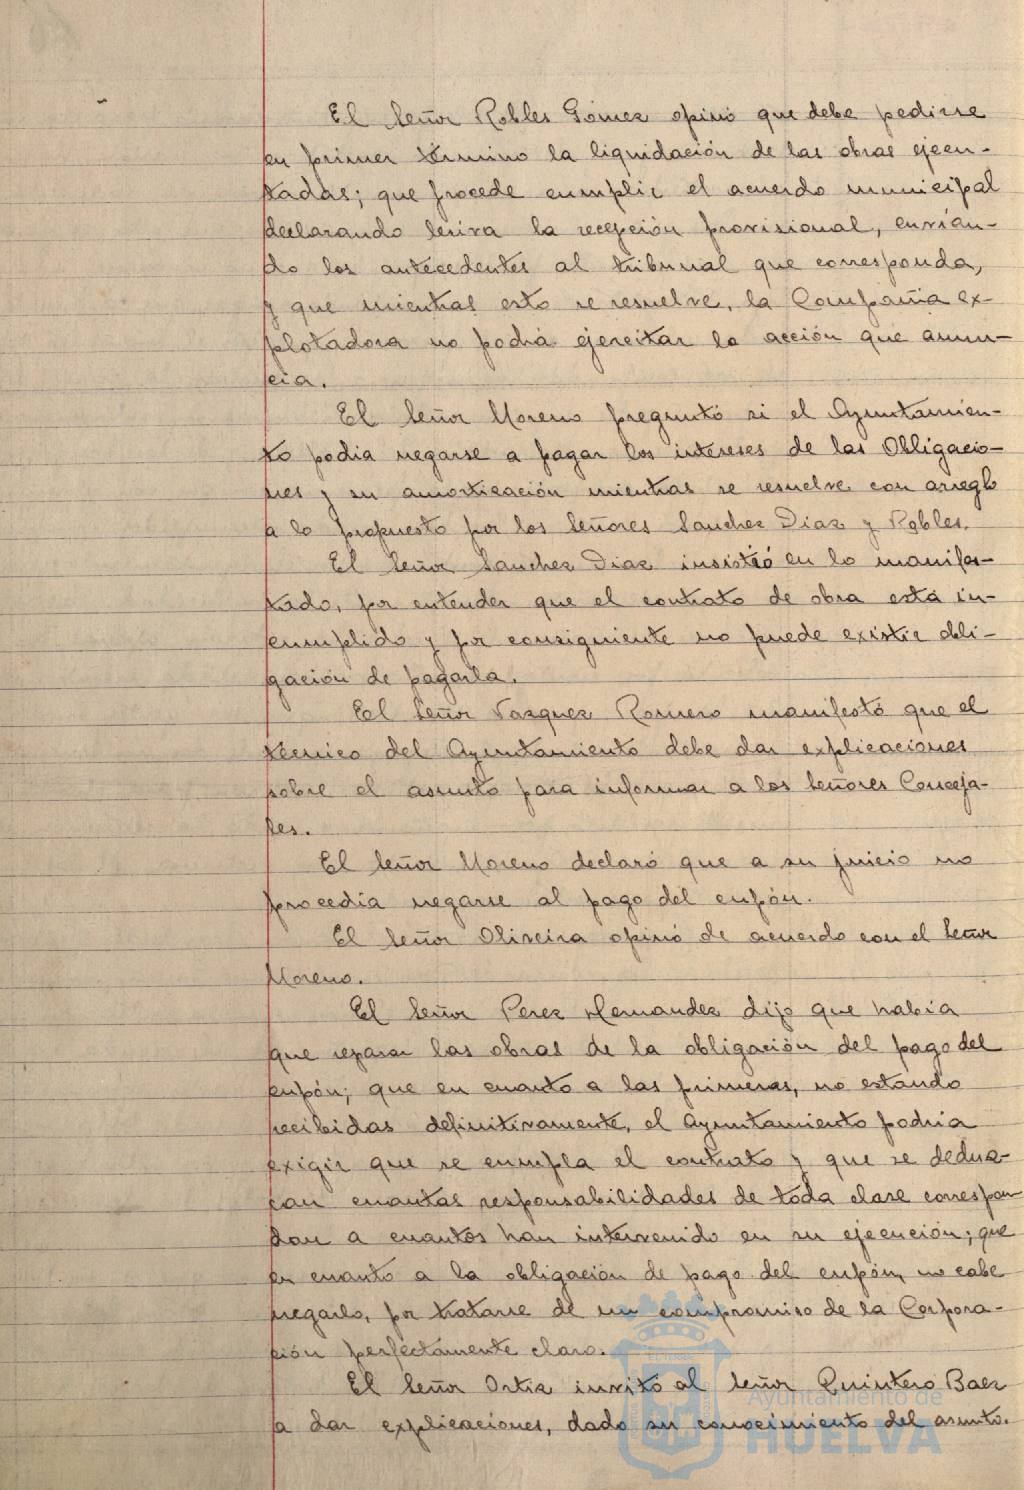 El Señor Robles Gómez opinó que debe pedirse
en primer término la liquidación de las obras ejecu-
tadas; que procede cumplir el acuerdo municipal
declarando lesiva la recepción provisional, envian-
do los antecedentes al tribunal que corresponda,
y que mientras esto se resuelve, la Compañia ex-
plotadora no podrá ejercitar la acción que anun-
cia.
El Señor Moreno preguntó si el Ayuntamien-
to podia negarse a pagar los intereses de las Obligacio-
nes y su amortización mientras se resuelve con arreglo
a lo propuesto por los Señores Sanchez Diaz y Robles.
El Señor Sanchez Diaz insistió en lo manifes-
tado, por entender que el contrato de obra está in-
cumplido y por consiguiente no puede existir obli-
gación de pagarla.
El Señor Vazquez Romero manifestó que el
técnico del Ayuntamiento debe dar explicaciones
sobre el asunto para informar a los Señores Conceja-
les.
El Señor Moreno declaró que a su juicio no
procedia negarse al pago del cupón.
El Señor Oliveira opinó de acuerdo con el Señor
Moreno.
El Señor Perez Hernandez dijo que habia
que separar las obras de la obligación del pago del
cupón; que en cuanto a las primeras, no estando
recibidas definitivamente, el Ayuntamiento podria
exigir que se cumpla el contrato y que se deduz-
can cuantas responsabilidades de toda clase correspon
dan a cuantos han intervenido en su ejecución; que
en cuanto a la obligación de pago del cupón, no cabe
negarlo, por tratarse de un compromiso de la Corpora-
ción perfectamente claro.
El Señor Ortiz invitó al Señor Quintero Baez
a dar explicaciones, dado su conocimiento del asunto.
Ayuntamiento de
HUELVA